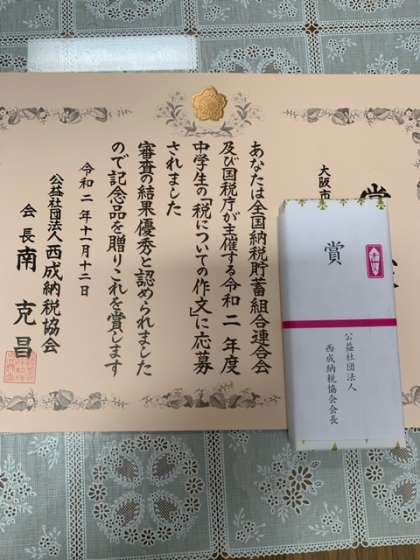 賞
大阪市
あなたは全国納税貯蓄組合連合会
及び国税庁が主催する令和二年度
中学生の「税についての作文」に応募
されました
審査の結果優秀と認められました
ので記念品を贈りこれを賞します
令和二年十一月十二日
公益社団法人西成納税協会
会長 南 克昌
賞
公益社団法人
西成納税協会会長